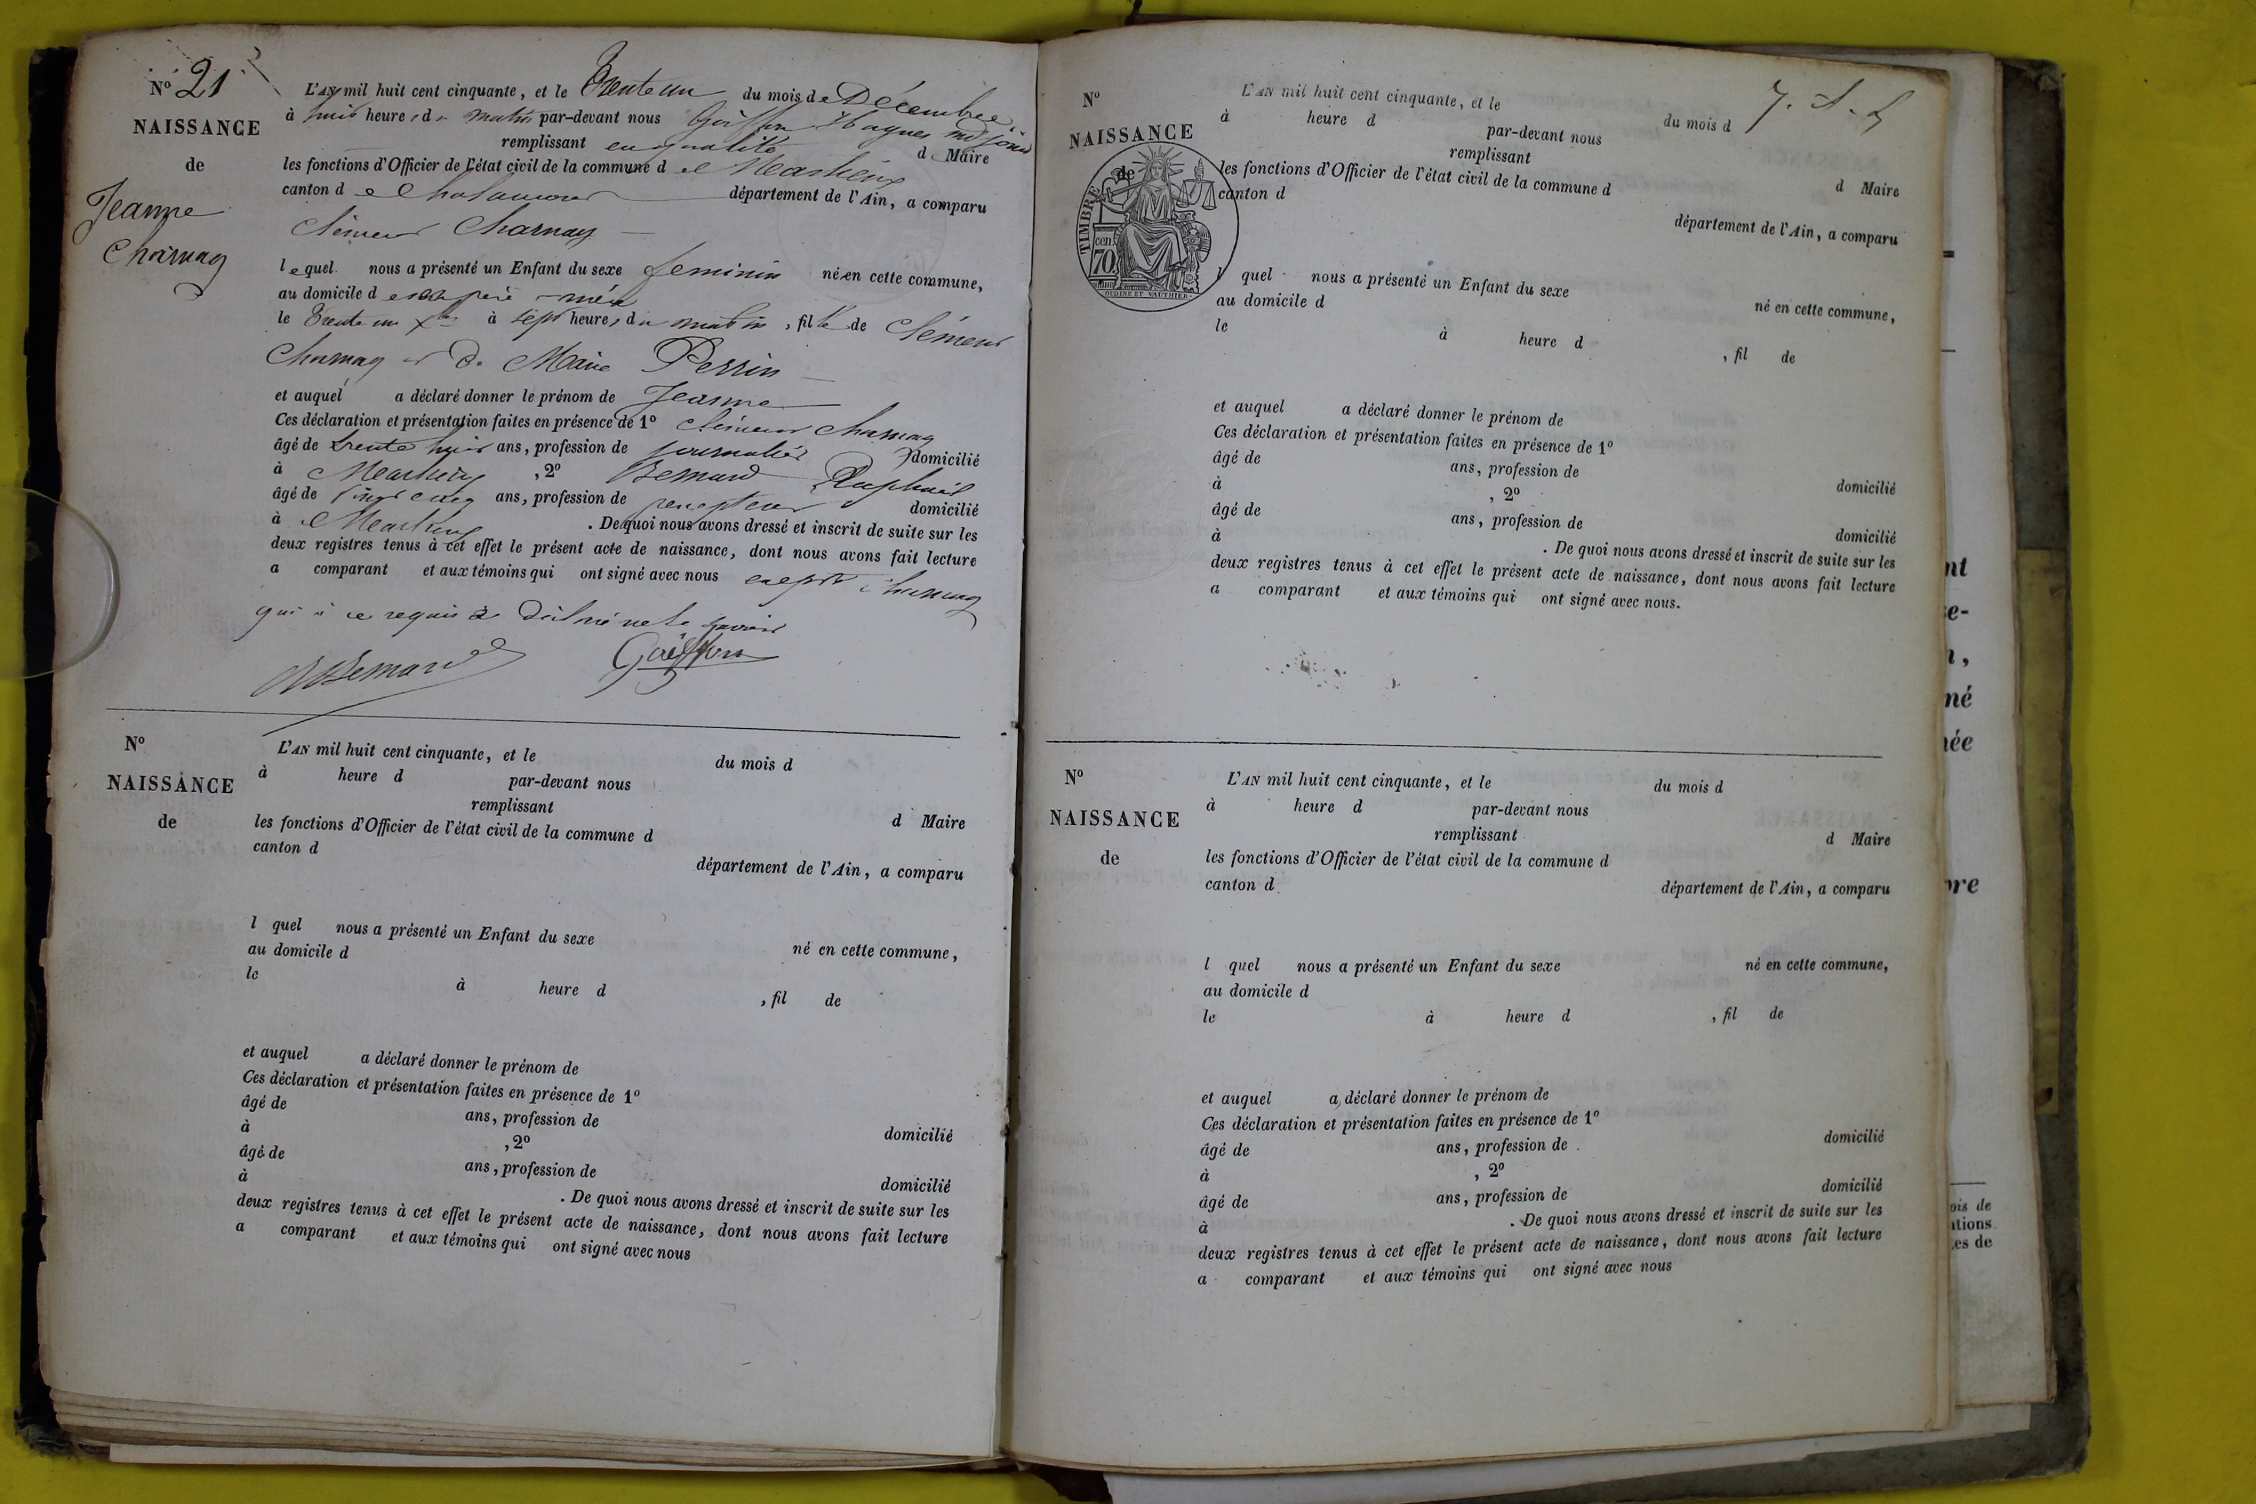 N° 21
NAISSANCE
de
Jeanne
Charnay
L'AN mil huit cent cinquante, et le Trente un du mois de Décembre
à huit heures du matin par-devant nous
remplissant en qualité d Maire
les fonctions d'Officier de l'état civil de la commune de
canton de Chalamont département de l'Ain, a comparu
Clément Charnay
lequel nous a présenté un Enfant du sexe feminin né en cette commune,
au domicile de ses père mère
le Trente un Xbre à sept heures du matin, fille de Clément
Charnay et de Marie Perrin
et auquel a déclaré donner le prénom de Jeanne
Ces déclaration et présentation faites en présence de 1° Clément Charnay
âgé de trente huit ans, profession de journalier domicilié
à , 2° Bernard Raphaël
âgé de vingt cinq ans, profession de domicilié
à . De quoi nous avons dressé et inscrit de suite sur les
deux registres tenus à cet effet le présent acte de naissance, dont nous avons fait lecture
a comparant et aux témoins qui ont signé avec nous excepté Charnay
qui à ce requis a dit ne le savoir
RBernard
N°
NAISSANCE
de
L'AN mil huit cent cinquante, et le du mois d
à heure d par-devant nous
remplissant d Maire
les fonctions d'Officier de l'état civil de la commune d
canton d département de l'Ain, a comparu
l quel nous a présenté un Enfant du sexe né en cette commune,
au domicile d
le à heure d , fil de
et auquel a déclaré donner le prénom de
Ces déclaration et présentation faites en présence de 1°
âgé de ans, profession de domicilié
à , 2°
âgé de ans, profession de domicilié
à . De quoi nous avons dressé et inscrit de suite sur les
deux registres tenus à cet effet le présent acte de naissance, dont nous avons fait lecture
a comparant et aux témoins qui ont signé avec nous
N°
NAISSANCE
de
TIMBRE
cen. 70
OUDINÉ ET VAUTHIER
L'AN mil huit cent cinquante, et le du mois d
à heure d par-devant nous
remplissant d Maire
les fonctions d'Officier de l'état civil de la commune d
canton d département de l'Ain, a comparu
l quel nous a présenté un Enfant du sexe né en cette commune,
au domicile d
le à heure d , fil de
et auquel a déclaré donner le prénom de
Ces déclaration et présentation faites en présence de 1°
âgé de ans, profession de domicilié
à , 2°
âgé de ans, profession de domicilié
à . De quoi nous avons dressé et inscrit de suite sur les
deux registres tenus à cet effet le présent acte de naissance, dont nous avons fait lecture
a comparant et aux témoins qui ont signé avec nous.
N°
NAISSANCE
de
L'AN mil huit cent cinquante, et le du mois d
à heure d par-devant nous
remplissant d Maire
les fonctions d'Officier de l'état civil de la commune d
canton d département de l'Ain, a comparu
l quel nous a présenté un Enfant du sexe né en cette commune,
au domicile d
le à heure d , fil de
et auquel a déclaré donner le prénom de
Ces déclaration et présentation faites en présence de 1°
âgé de ans, profession de domicilié
à , 2°
âgé de ans, profession de domicilié
à . De quoi nous avons dressé et inscrit de suite sur les
deux registres tenus à cet effet le présent acte de naissance, dont nous avons fait lecture
a comparant et aux témoins qui ont signé avec nous